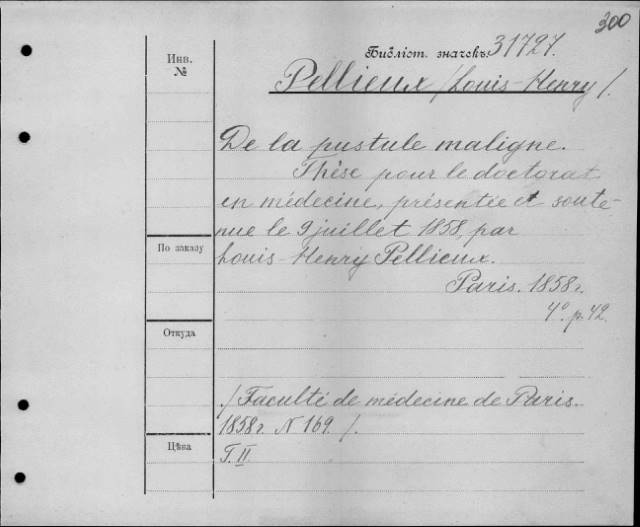 300
Библіот. значекъ 31727.
Инв.
№
Pellieux /Louis-Henry/.
De la pustule maligne.
Thèse pour le doctorat
en médecine, présentée et soute-
nue le 9 juillet 1858, par
По заказу
Louis-Henry Pellieux.
Paris. 1858 г.
4º. p. 42.
Откуда
/Faculté de médecine de Paris.
1858 г. N 169./.
Цѣна
T. II.